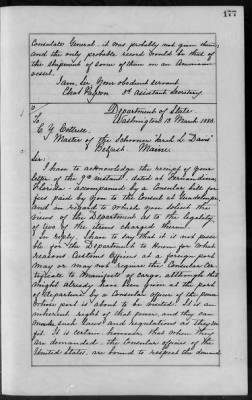 177
Consulate General. it was probably not given them,
and the only probable record would be that of
the shipment of some of them on an American
vessel.
I am, Sir, Your obedient servant
3d Assistant Secretary.
Department of State
Washington 13 March 1883.
To
C. G. Cottrell,
Master of the Schooner "Sarah L. Davis"
Belfast Maine
Sir:
I have to acknowledge the receipt of your
letter of the 9th instant, dated at Fernandina
Florida - accompanied by a Consular bill for
fees paid by you to the Consul at Guadeloupe,
and in regard to which you solicit the
views of the Department as to the legality
of two of the items charged therein.
In reply, I have to say that it is not possi-
ble for the Department to know for what
reasons Customs Officers at a foreign port
may or may not require the Consular Cer-
tificate to Manifests of cargo, although this
might already have been given at the port
of departure by a Consular officer of the power
whose port is about to be visited. It is an
inherent right of that power, and they can
make such laws and regulations as they see
fit. It is certain, however, that when they
are demanded, the Consular officers of the
United States, are bound to respect the demand